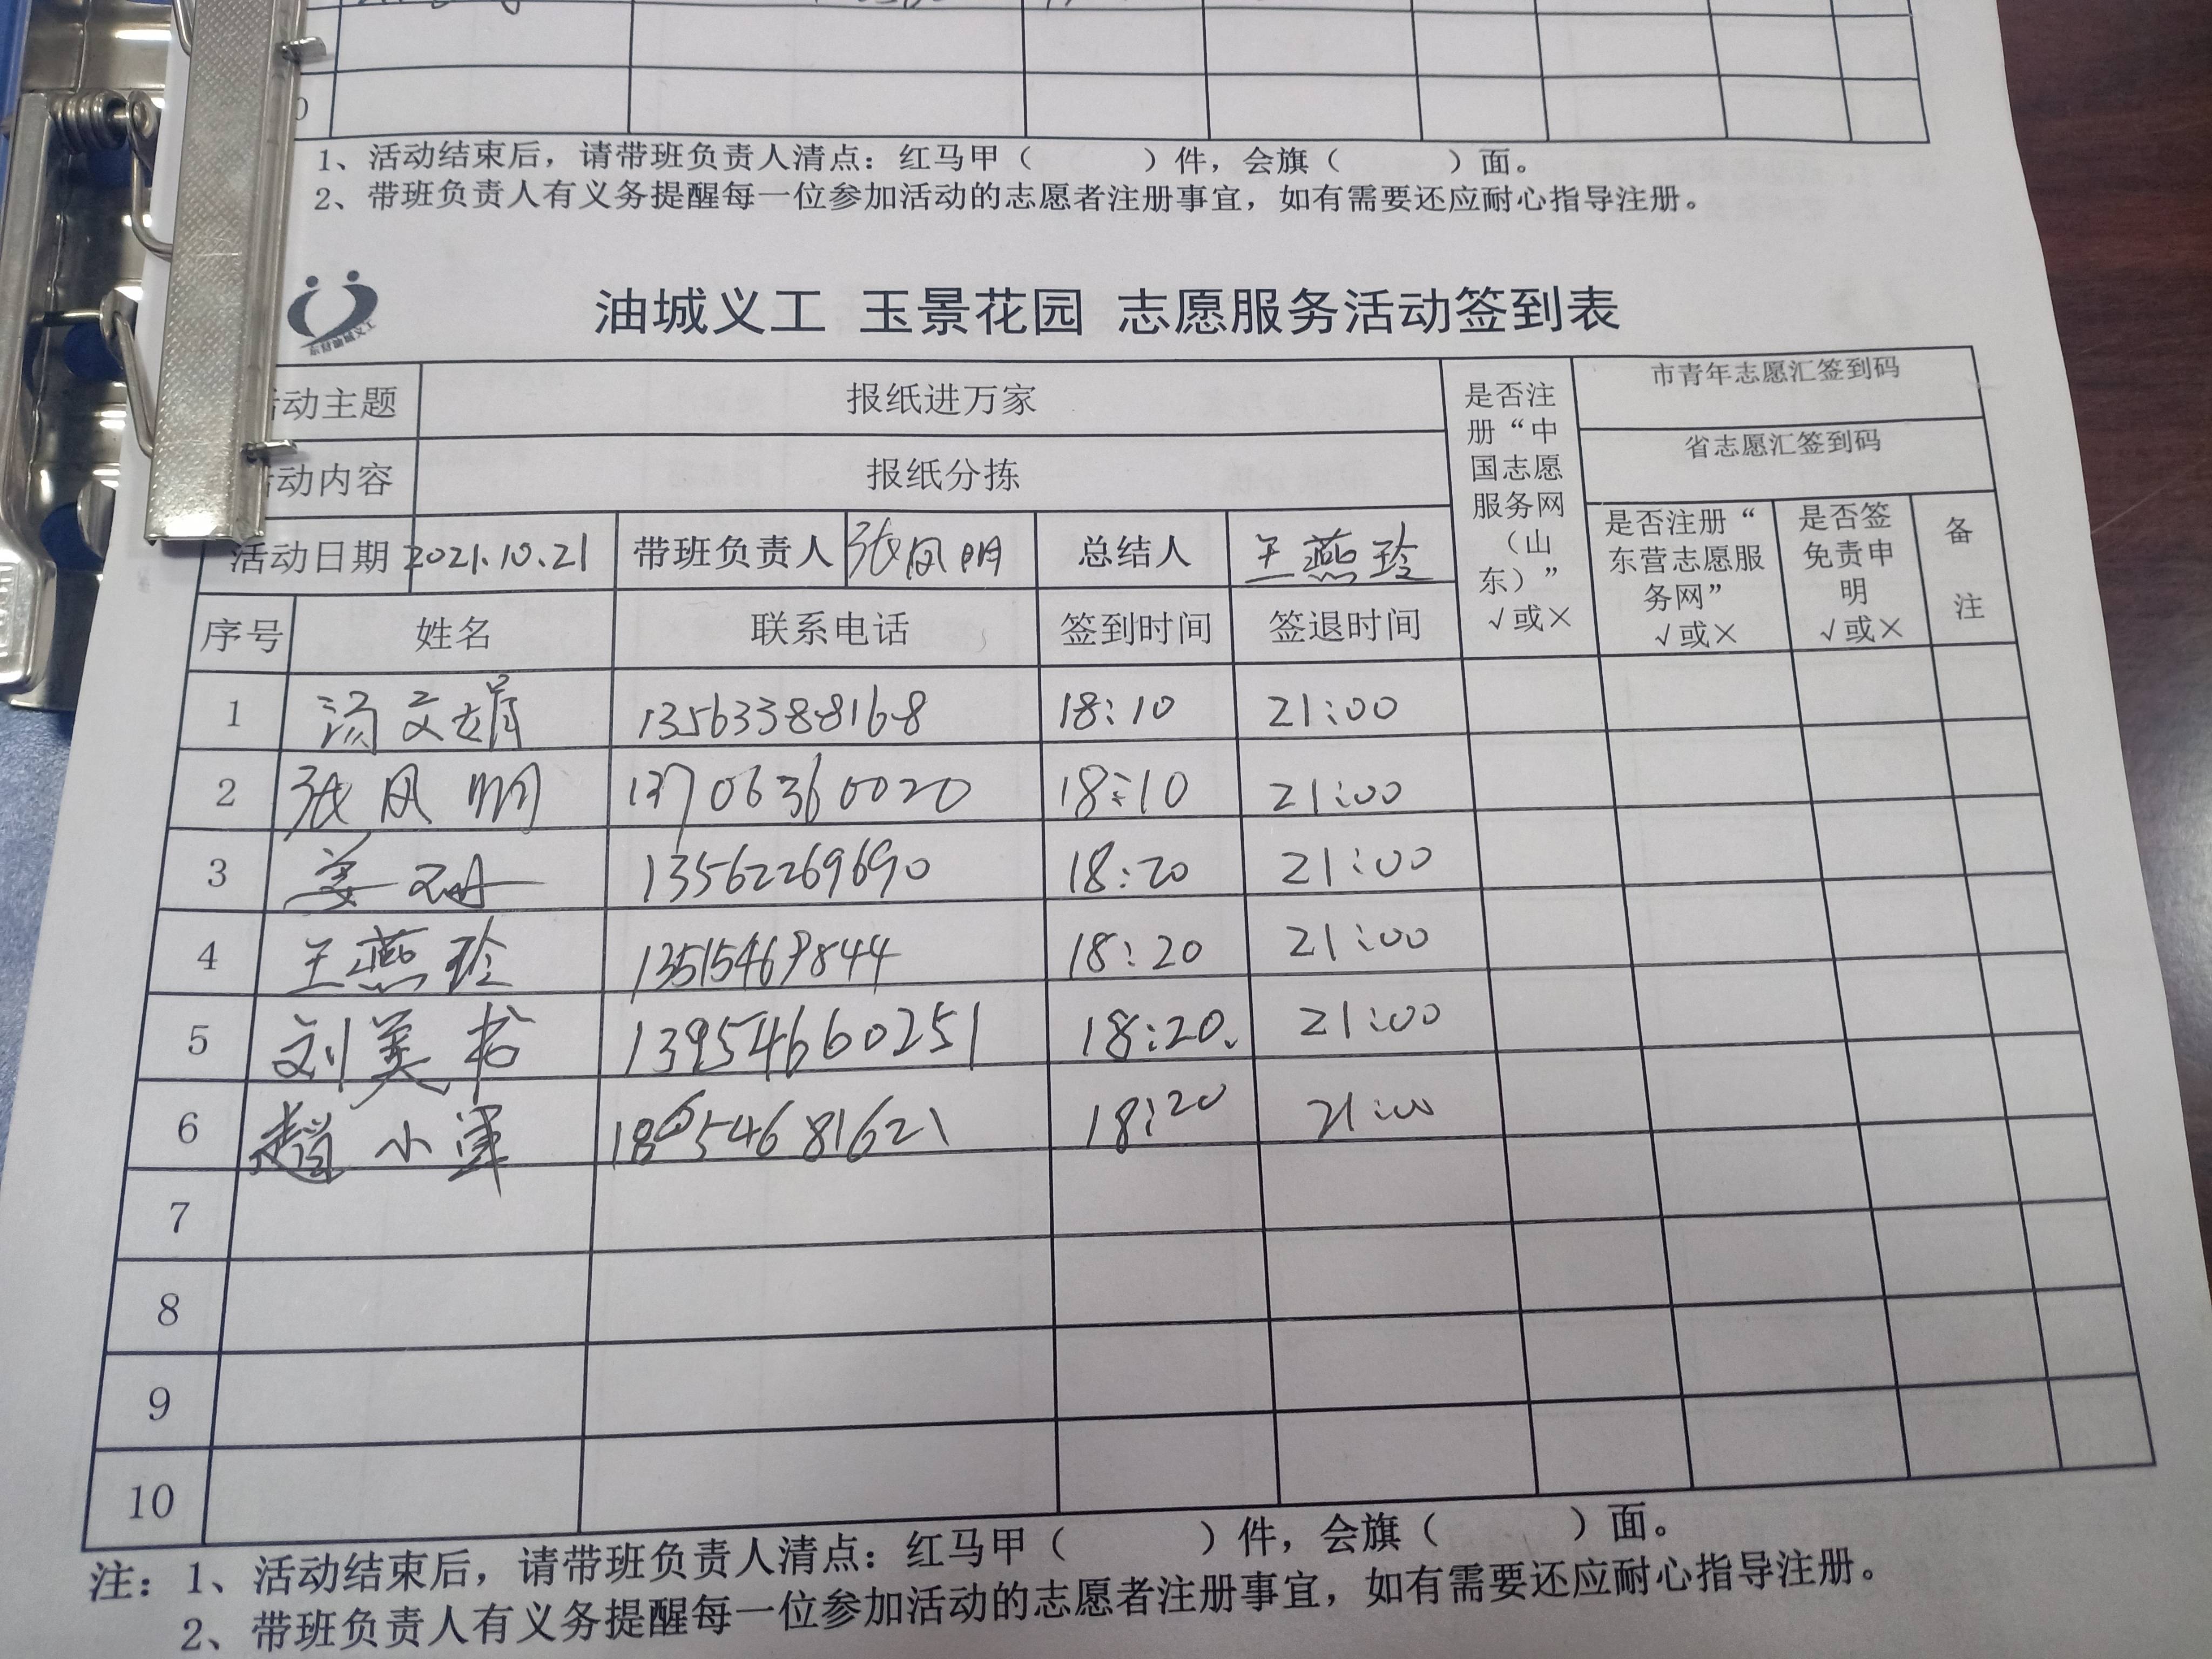 1、活动结束后，请带班负责人清点：红马甲（ ）件，会旗（ ）面。
2、带班负责人有义务提醒每一位参加活动的志愿者注册事宜，如有需要还应耐心指导注册。
东营油城义工
油城义工 玉景花园 志愿服务活动签到表
动主题 报纸进万家
动内容 报纸分拣
活动日期 2021.10.21 带班负责人 张凤明 总结人 王燕玲
是否注册“中国志愿服务网（山东）” √或×
市青年志愿汇签到码
省志愿汇签到码
是否注册“东营志愿服务网” √或×
是否签免责申明 √或×
备注
序号 姓名 联系电话 签到时间 签退时间
1 汤文娟 13563388168 18:10 21:00
2 张凤明 13706360020 18:10 21:00
3 姜珊 13562269690 18:20 21:00
4 王燕玲 13515469844 18:20 21:00
5 刘美 13954660251 18:20. 21:00
6 赵小军 18654681621 18:20 21:00
7
8
9
10
注：1、活动结束后，请带班负责人清点：红马甲（ ）件，会旗（ ）面。
2、带班负责人有义务提醒每一位参加活动的志愿者注册事宜，如有需要还应耐心指导注册。